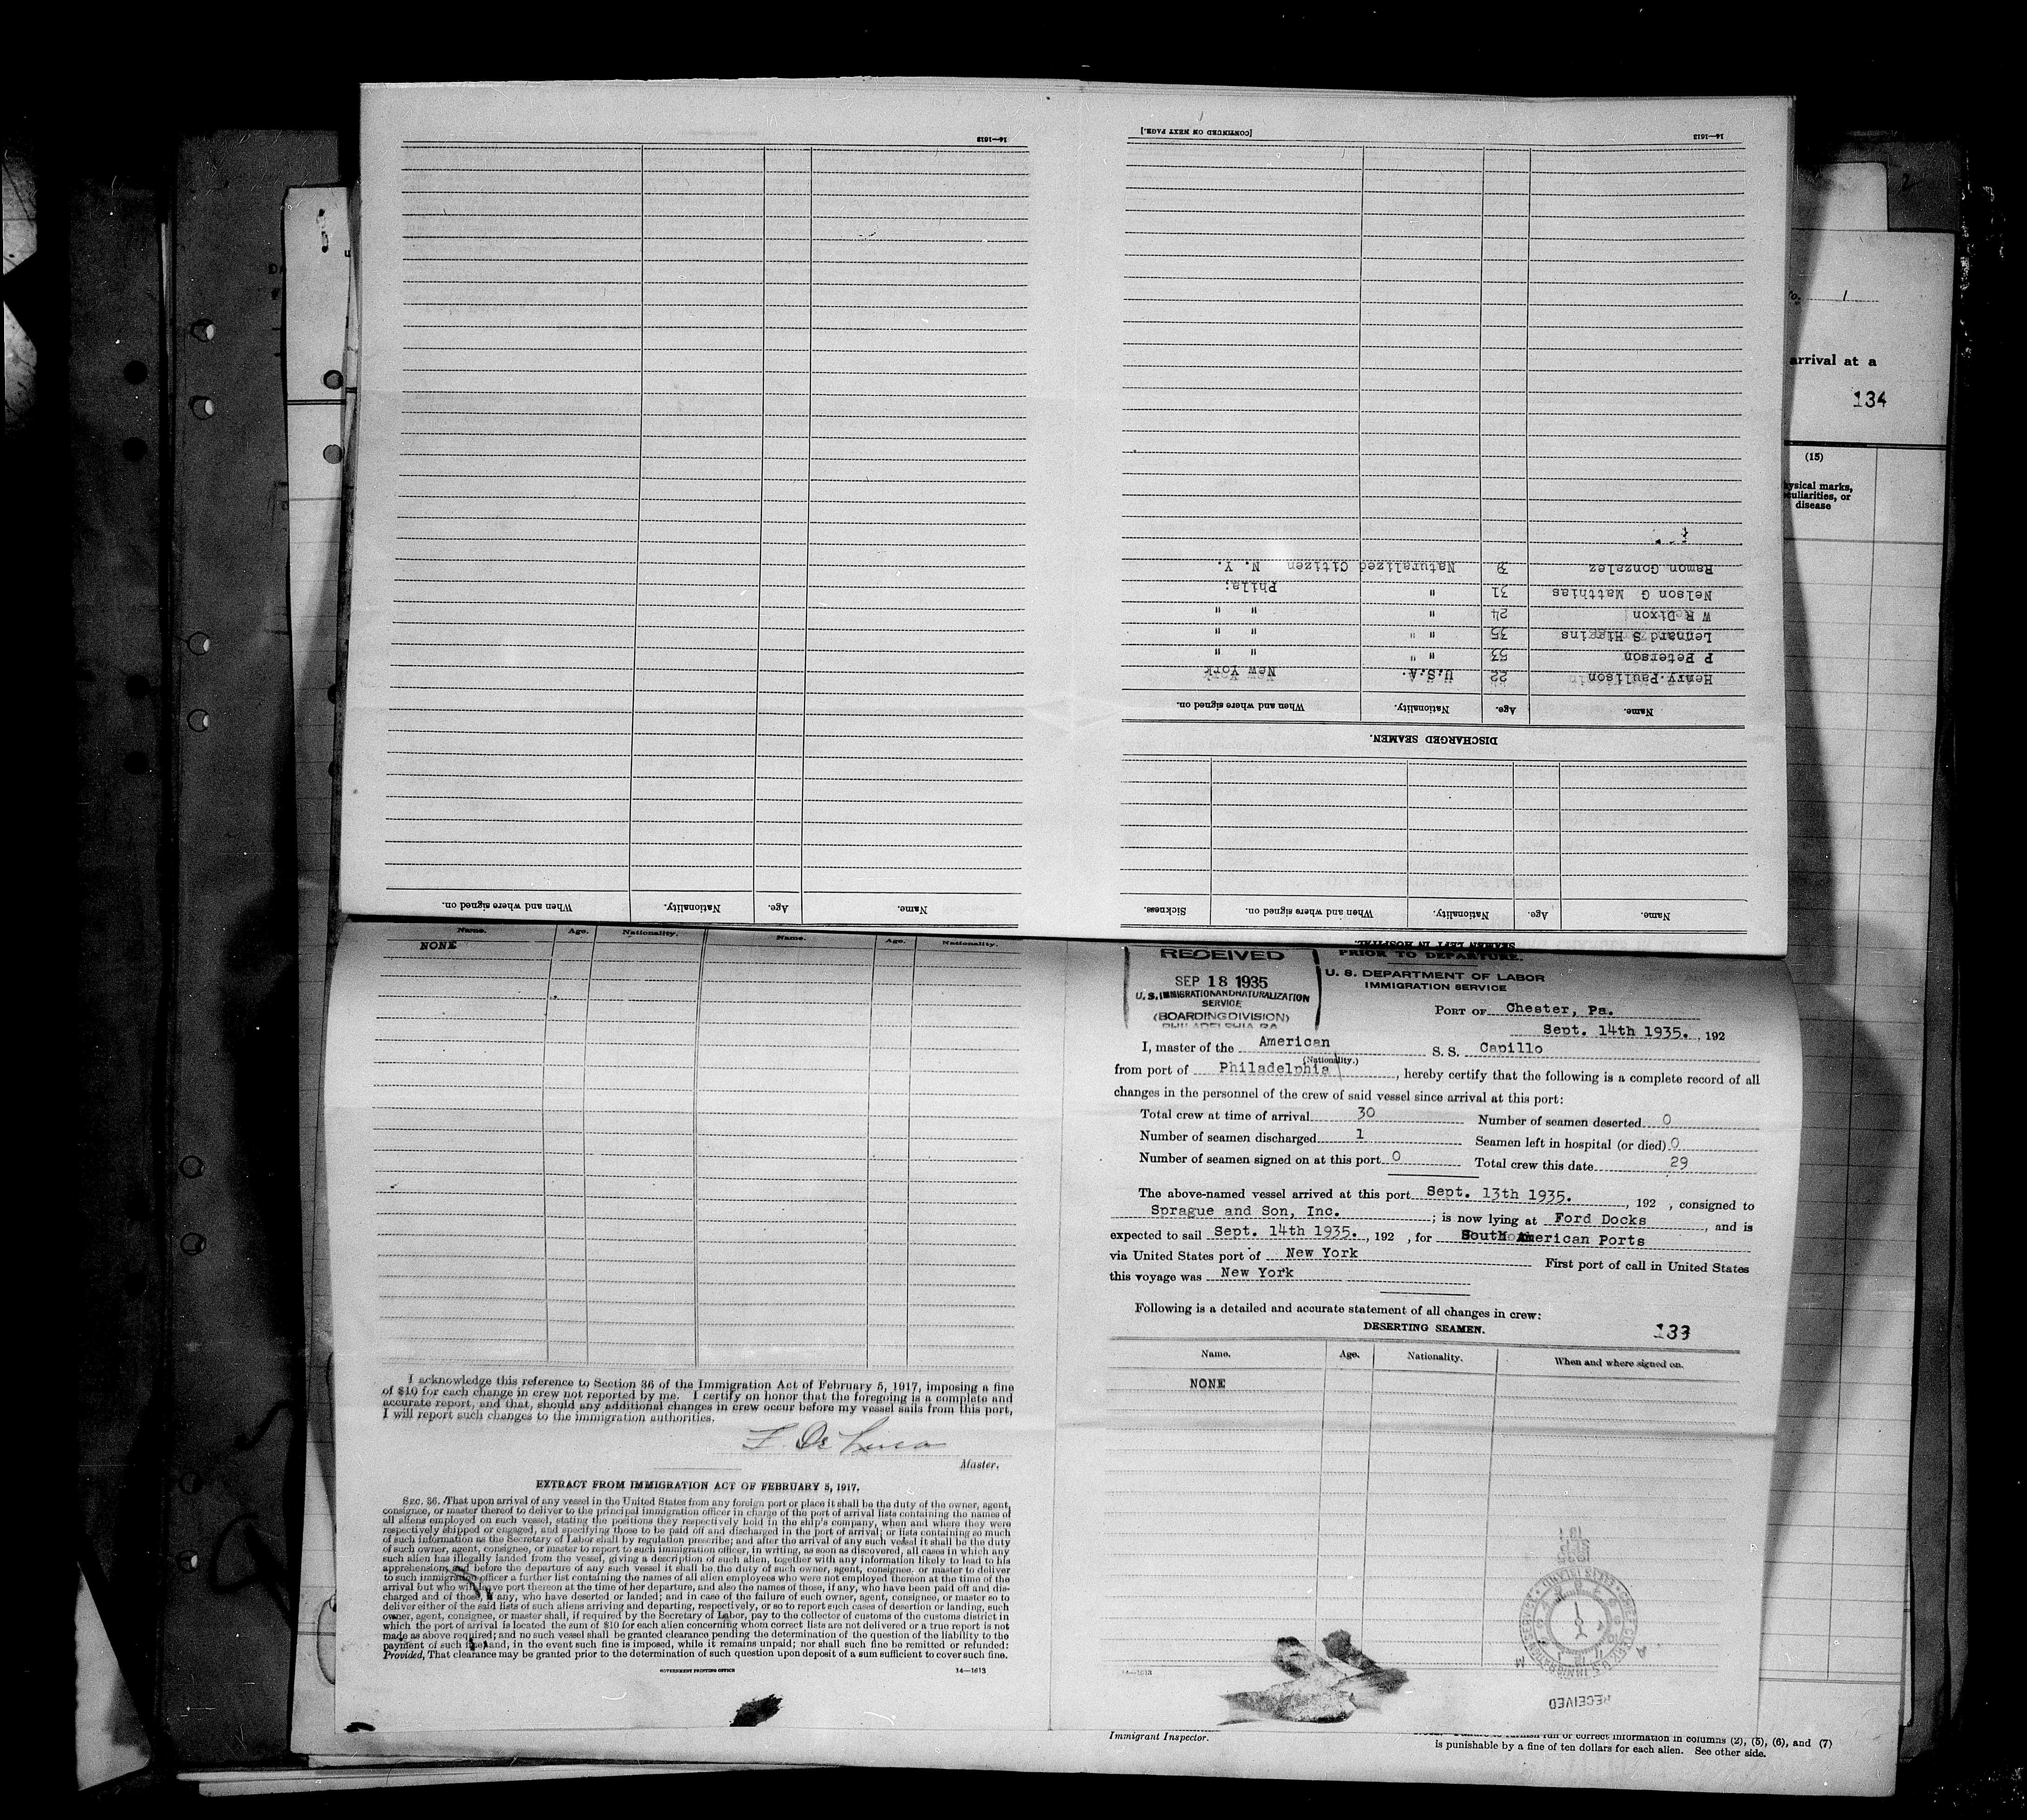 14—1613
[CONTINUED ON NEXT PAGE.]
14—1613
Ramon Gonzalez Naturalized Citizen N. Y.
Nelson G Matthias 31 " Phila;
W R Dixon 24 " " "
Lennard S Higgins 35 " " " "
P Peterson 53 " " " "
Henry Paulison 22 U.S.A. New York
Name. Age. Nationality. When and where signed on.
DISCHARGED SEAMEN.
Name. Age. Nationality. When and where signed on. Sickness.
SEAMEN LEFT IN HOSPITAL.
Name. Age. Nationality. When and where signed on.
2
1
arrival at a
134
(15)
ysical marks,
culiarities, or
disease
Name. Age. Nationality. Name. Age. Nationality.
NONE
I acknowledge this reference to Section 36 of the Immigration Act of February 5, 1917, imposing a fine
of $10 for each change in crew not reported by me. I certify on honor that the foregoing is a complete and
accurate report, and that, should any additional changes in crew occur before my vessel sails from this port,
I will report such changes to the immigration authorities.
F. De Luca
Master.
EXTRACT FROM IMMIGRATION ACT OF FEBRUARY 5, 1917.
SEC. 36. That upon arrival of any vessel in the United States from any foreign port or place it shall be the duty of the owner, agent,
consignee, or master thereof to deliver to the principal immigration officer in charge of the port of arrival lists containing the names of
all aliens employed on such vessel, stating the positions they respectively hold in the ship's company, when and where they were
respectively shipped or engaged, and specifying those to be paid off and discharged in the port of arrival; or lists containing so much
of such information as the Secretary of Labor shall by regulation prescribe; and after the arrival of any such vessel it shall be the duty
of such owner, agent, consignee, or master to report to such immigration officer, in writing, as soon as discovered, all cases in which any
such alien has illegally landed from the vessel, giving a description of such alien, together with any information likely to lead to his
apprehension; and before the departure of any such vessel it shall be the duty of such owner, agent, consignee, or master to deliver
to such immigration officer a further list containing the names of all alien employees who were not employed thereon at the time of the
arrival but who will leave port thereon at the time of her departure, and also the names of those, if any, who have been paid off and dis-
charged and of those, if any, who have deserted or landed; and in case of the failure of such owner, agent, consignee, or master so to
deliver either of the said lists of such aliens arriving and departing, respectively, or so to report such cases of desertion or landing, such
owner, agent, consignee, or master shall, if required by the Secretary of Labor, pay to the collector of customs of the customs district in
which the port of arrival is located the sum of $10 for each alien concerning whom correct lists are not delivered or a true report is not
made as above required; and no such vessel shall be granted clearance pending the determination of the question of the liability to the
payment of such fine, and, in the event such fine is imposed, while it remains unpaid; nor shall such fine be remitted or refunded:
Provided, That clearance may be granted prior to the determination of such question upon deposit of a sum sufficient to cover such fine.
GOVERNMENT PRINTING OFFICE 14—1613
RECEIVED
SEP 18 1935
U. S. IMMIGRATION AND NATURALIZATION
SERVICE
(BOARDING DIVISION)
PHILADELPHIA PA
PRIOR TO DEPARTURE.
U. S. DEPARTMENT OF LABOR
IMMIGRATION SERVICE
PORT OF Chester, Pa.
Sept. 14th 1935. , 192
I, master of the American S. S. Capillo
(Nationality.)
from port of Philadelphia , hereby certify that the following is a complete record of all
changes in the personnel of the crew of said vessel since arrival at this port:
Total crew at time of arrival 30 Number of seamen deserted 0
Number of seamen discharged 1 Seamen left in hospital (or died) 0
Number of seamen signed on at this port 0 Total crew this date 29
The above-named vessel arrived at this port Sept. 13th 1935. , 192 , consigned to
Sprague and Son, Inc. ; is now lying at Ford Docks , and is
expected to sail Sept. 14th 1935. , 192 , for South American Ports
via United States port of New York First port of call in United States
this voyage was New York
Following is a detailed and accurate statement of all changes in crew:
DESERTING SEAMEN. 133
Name. Age. Nationality. When and where signed on.
NONE
14—1613
RECEIVED
Immigrant Inspector.
full or correct information in columns (2), (5), (6), and (7)
is punishable by a fine of ten dollars for each alien. See other side.